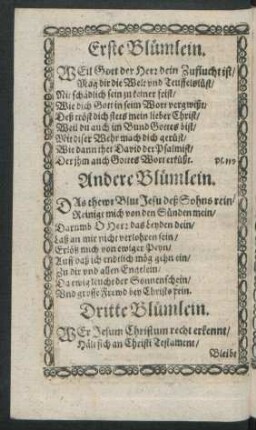 Erste Blümlein.
WEil Gott der Herr dein Zuflucht ist/
Mag dir die Welt vnd Teuffels list/
Nit schädlich sein zu keiner frist/
Wie dich Gott in seim Wort vergwißt/
Deß tröst dich stets mein lieber Christ/
Weil du auch im Bund Gottes bist/
Mit diser Wehr mach dich gerüst/
Wie dann thet David der Psalmist/
Der jhm auch Gottes Wort erküßt. Ps. 119
Andere Blümlein.
DAs thewr Blut Jesu deß Sohns rein/
Reinigt mich von den Sünden mein/
Darumb O Herr das Leyden dein/
Laß an mir nicht verlohren sein/
Erlöß mich von ewiger Peyn/
Auß daß ich endtlich mög gehn ein/
Zu dir vnd allen Englein/
Da ewig leucht der Sonnenschein/
Vnd grosse Frewd bey Christo rein.
Dritte Blümlein.
WEr Jesum Christum recht erkennt/
Hält sich an Christi Testament/
Bleibt